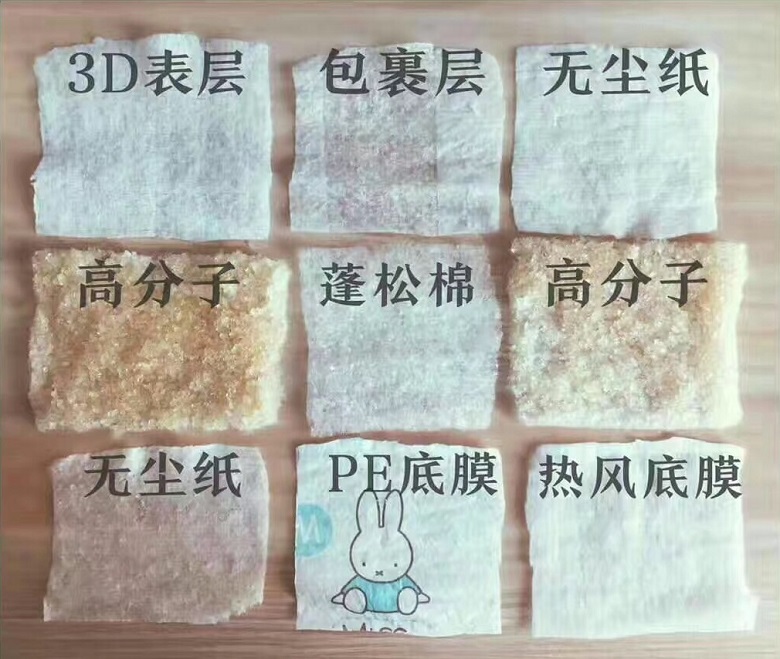 3D表层
包裹层
无尘纸
高分子
蓬松棉
高分子
无尘纸
PE底膜
热风底膜
M